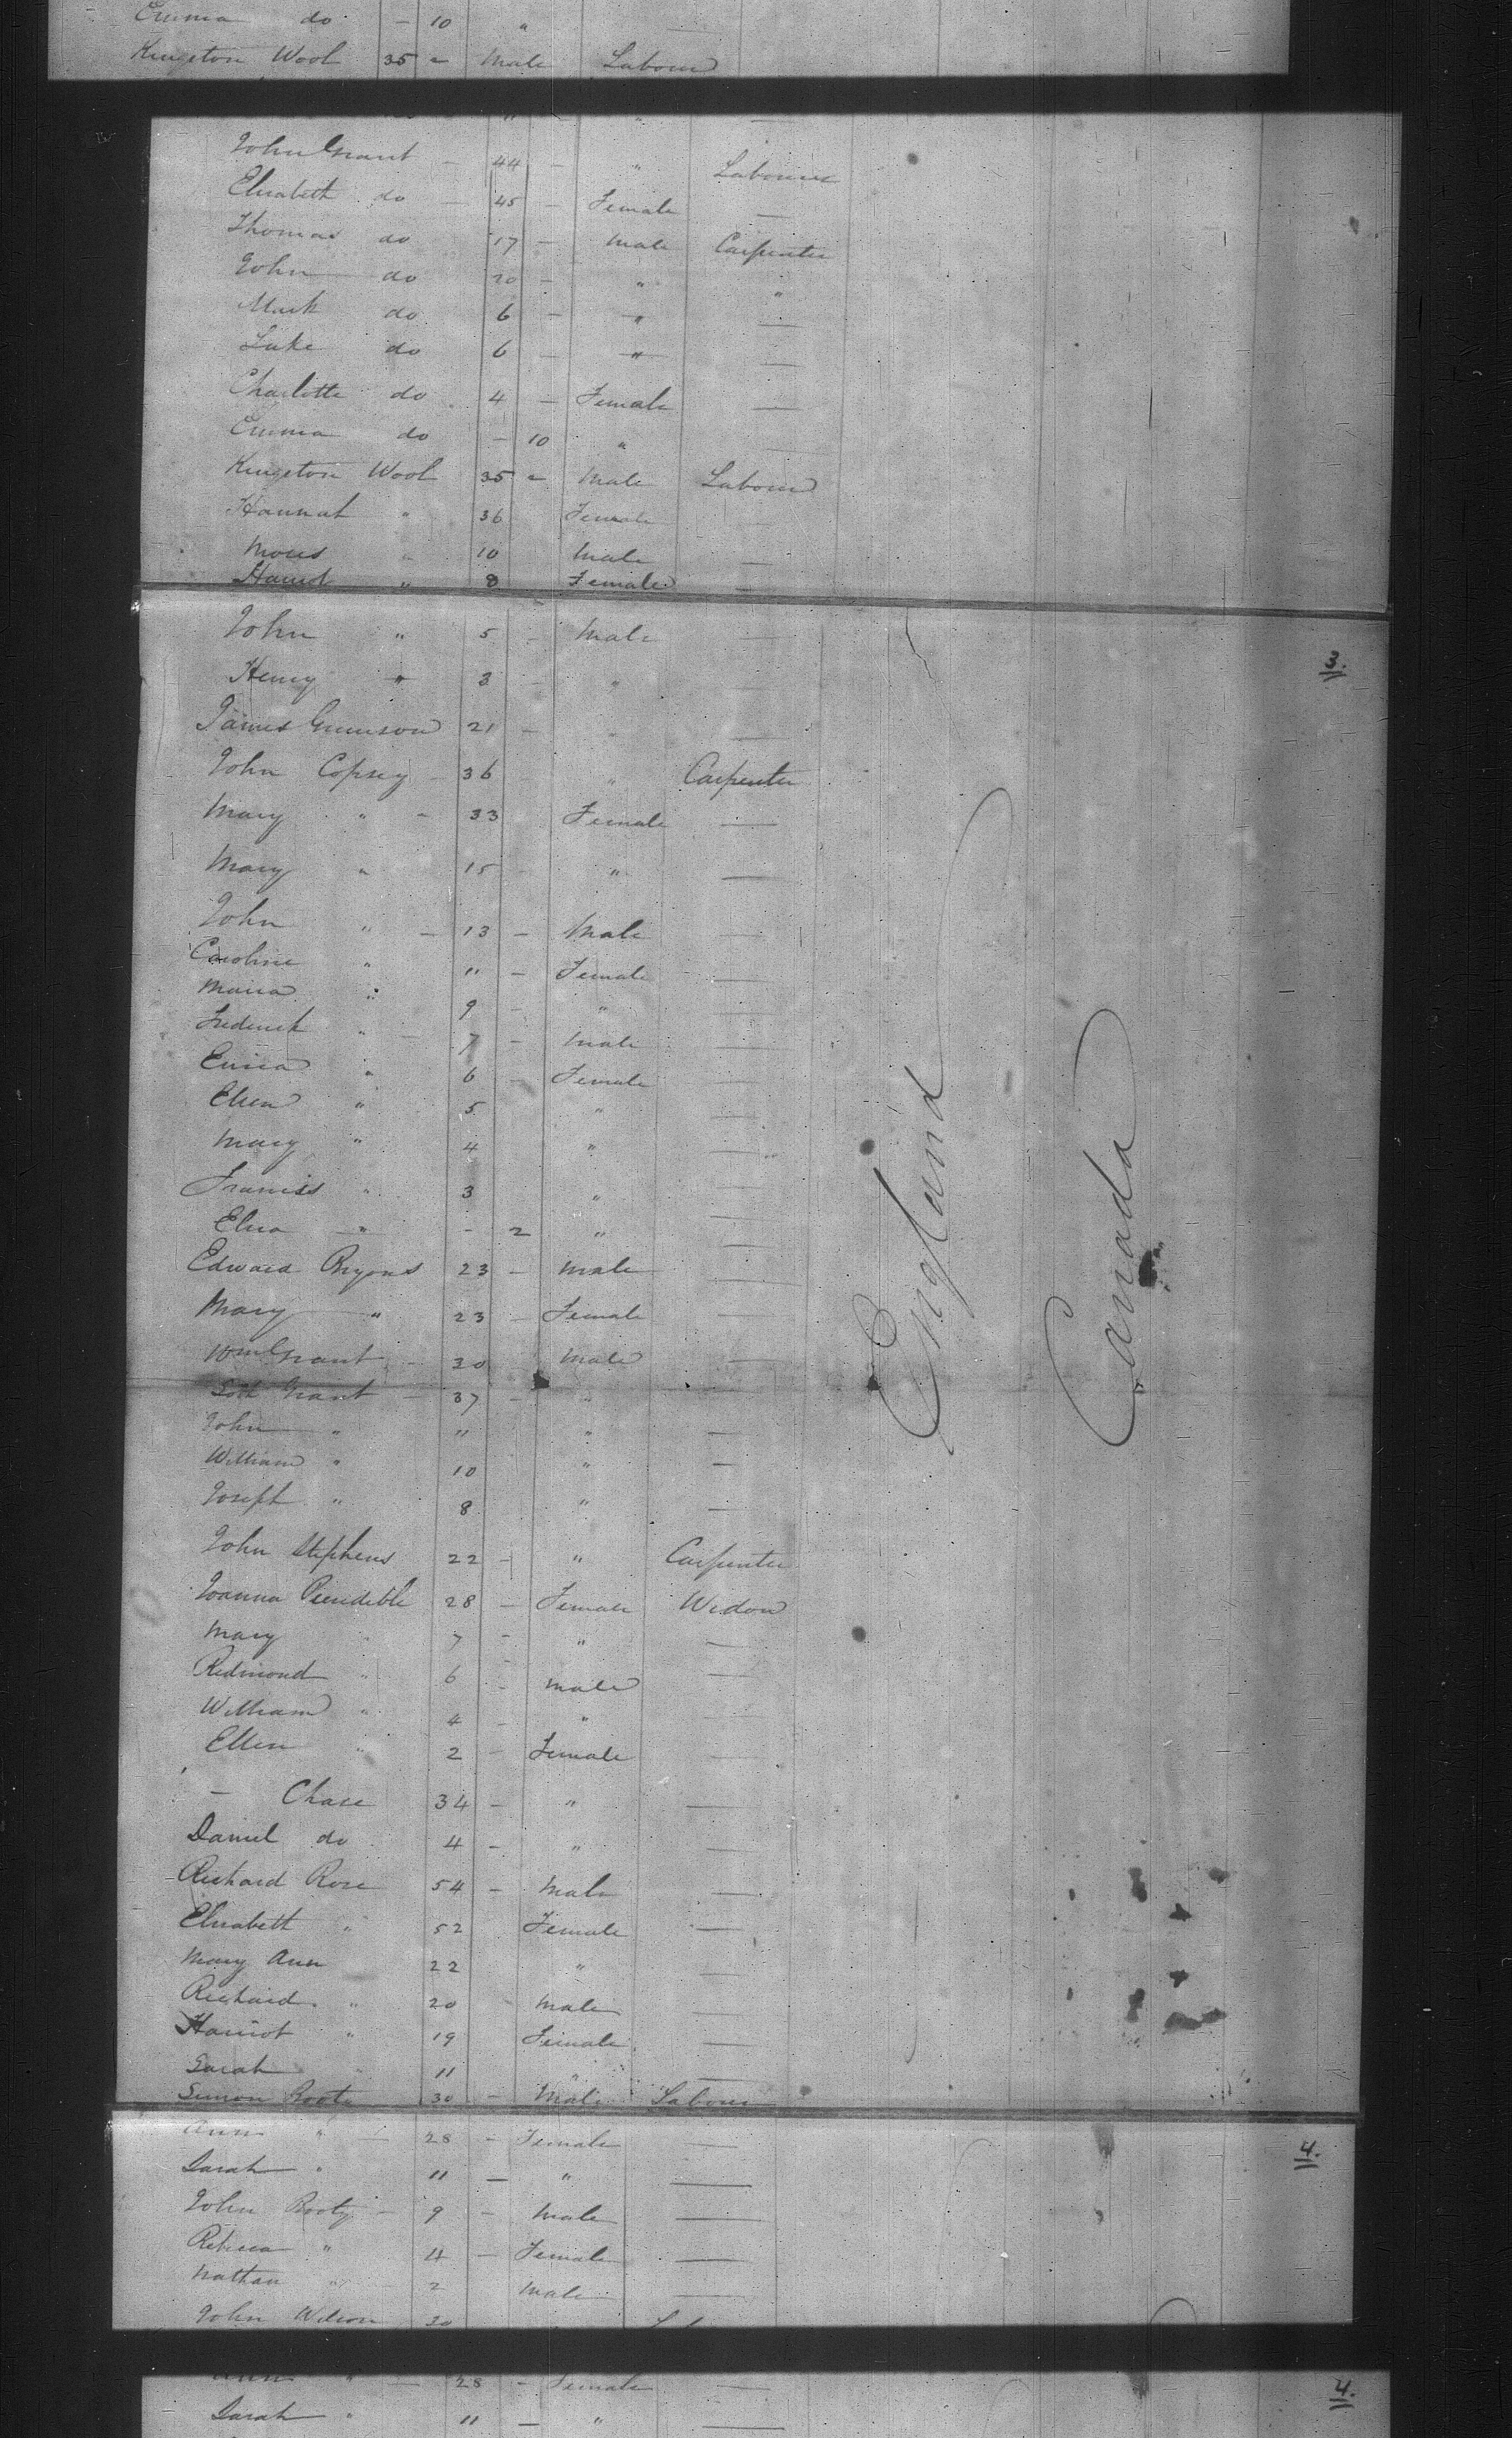 Emma do - 10 "
Kingston Wool 35 - Male Labour
John Grant - 44 - " Labourer
Elizabeth do - 45 - Female —
Thomas do 17 - Male Carpenter
John do 20 - " "
Mark do 6 - " —
Luke do 6 - " —
Charlotte do 4 - Female —
Emma do - 10 "
Kingston Wool 35 - Male Labour
Hannah " 36 Female
Moses " 10 Male —
Harriot " 8 Female —
John " 5 - Male —
3.
Henry " 3 - " —
James 21 - " —
John Copsey - 36 " Carpenter
Mary " - 33 Female —
Mary " 15 " —
John " - 13 - Male —
Caroline " 11 - Female —
Maria " 9 - " —
Frederick " - 7 - Male —
Emma " 6 - Female —
Eliza " 5 " —
Mary " 4 " —
Francis " 3 " —
Eliza " - 2 " —
Edward Bryons 23 - Male —
Mary " 23 - Female —
Wm Grant - 30 Male —
Grant - 37 - "
John " 11 " —
William " 10 " —
Joseph " 8 " —
John Stephens 22 - " Carpenter
Joanna 28 - Female Widow
Mary 7 - " —
Redmond " 6 - Male —
William " 4 - " —
Ellen " 2 - Female —
England
Canada
— Chase 34 - " —
Daniel do 4 - " —
Richard Rose 54 - Male —
Elizabeth " 52 Female —
Mary Ann 22 " —
Richard " 20 - Male —
Harriot " 19 Female —
Sarah " 11 " —
Simon Booty 30 - Male Labour
Ann " - 28 - Female —
4.
Sarah " 11 - " —
John Booty - 9 - Male —
Rebecca " 4 - Female —
Nathan " 2 Male —
John Wilson 30
Ann " - 28 - Female —
4.
Sarah " 11 - " —